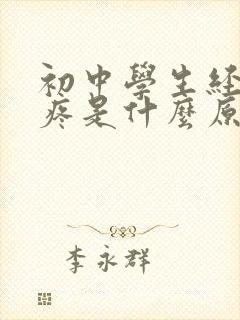 初中學生經
疼是什麼原
李永群